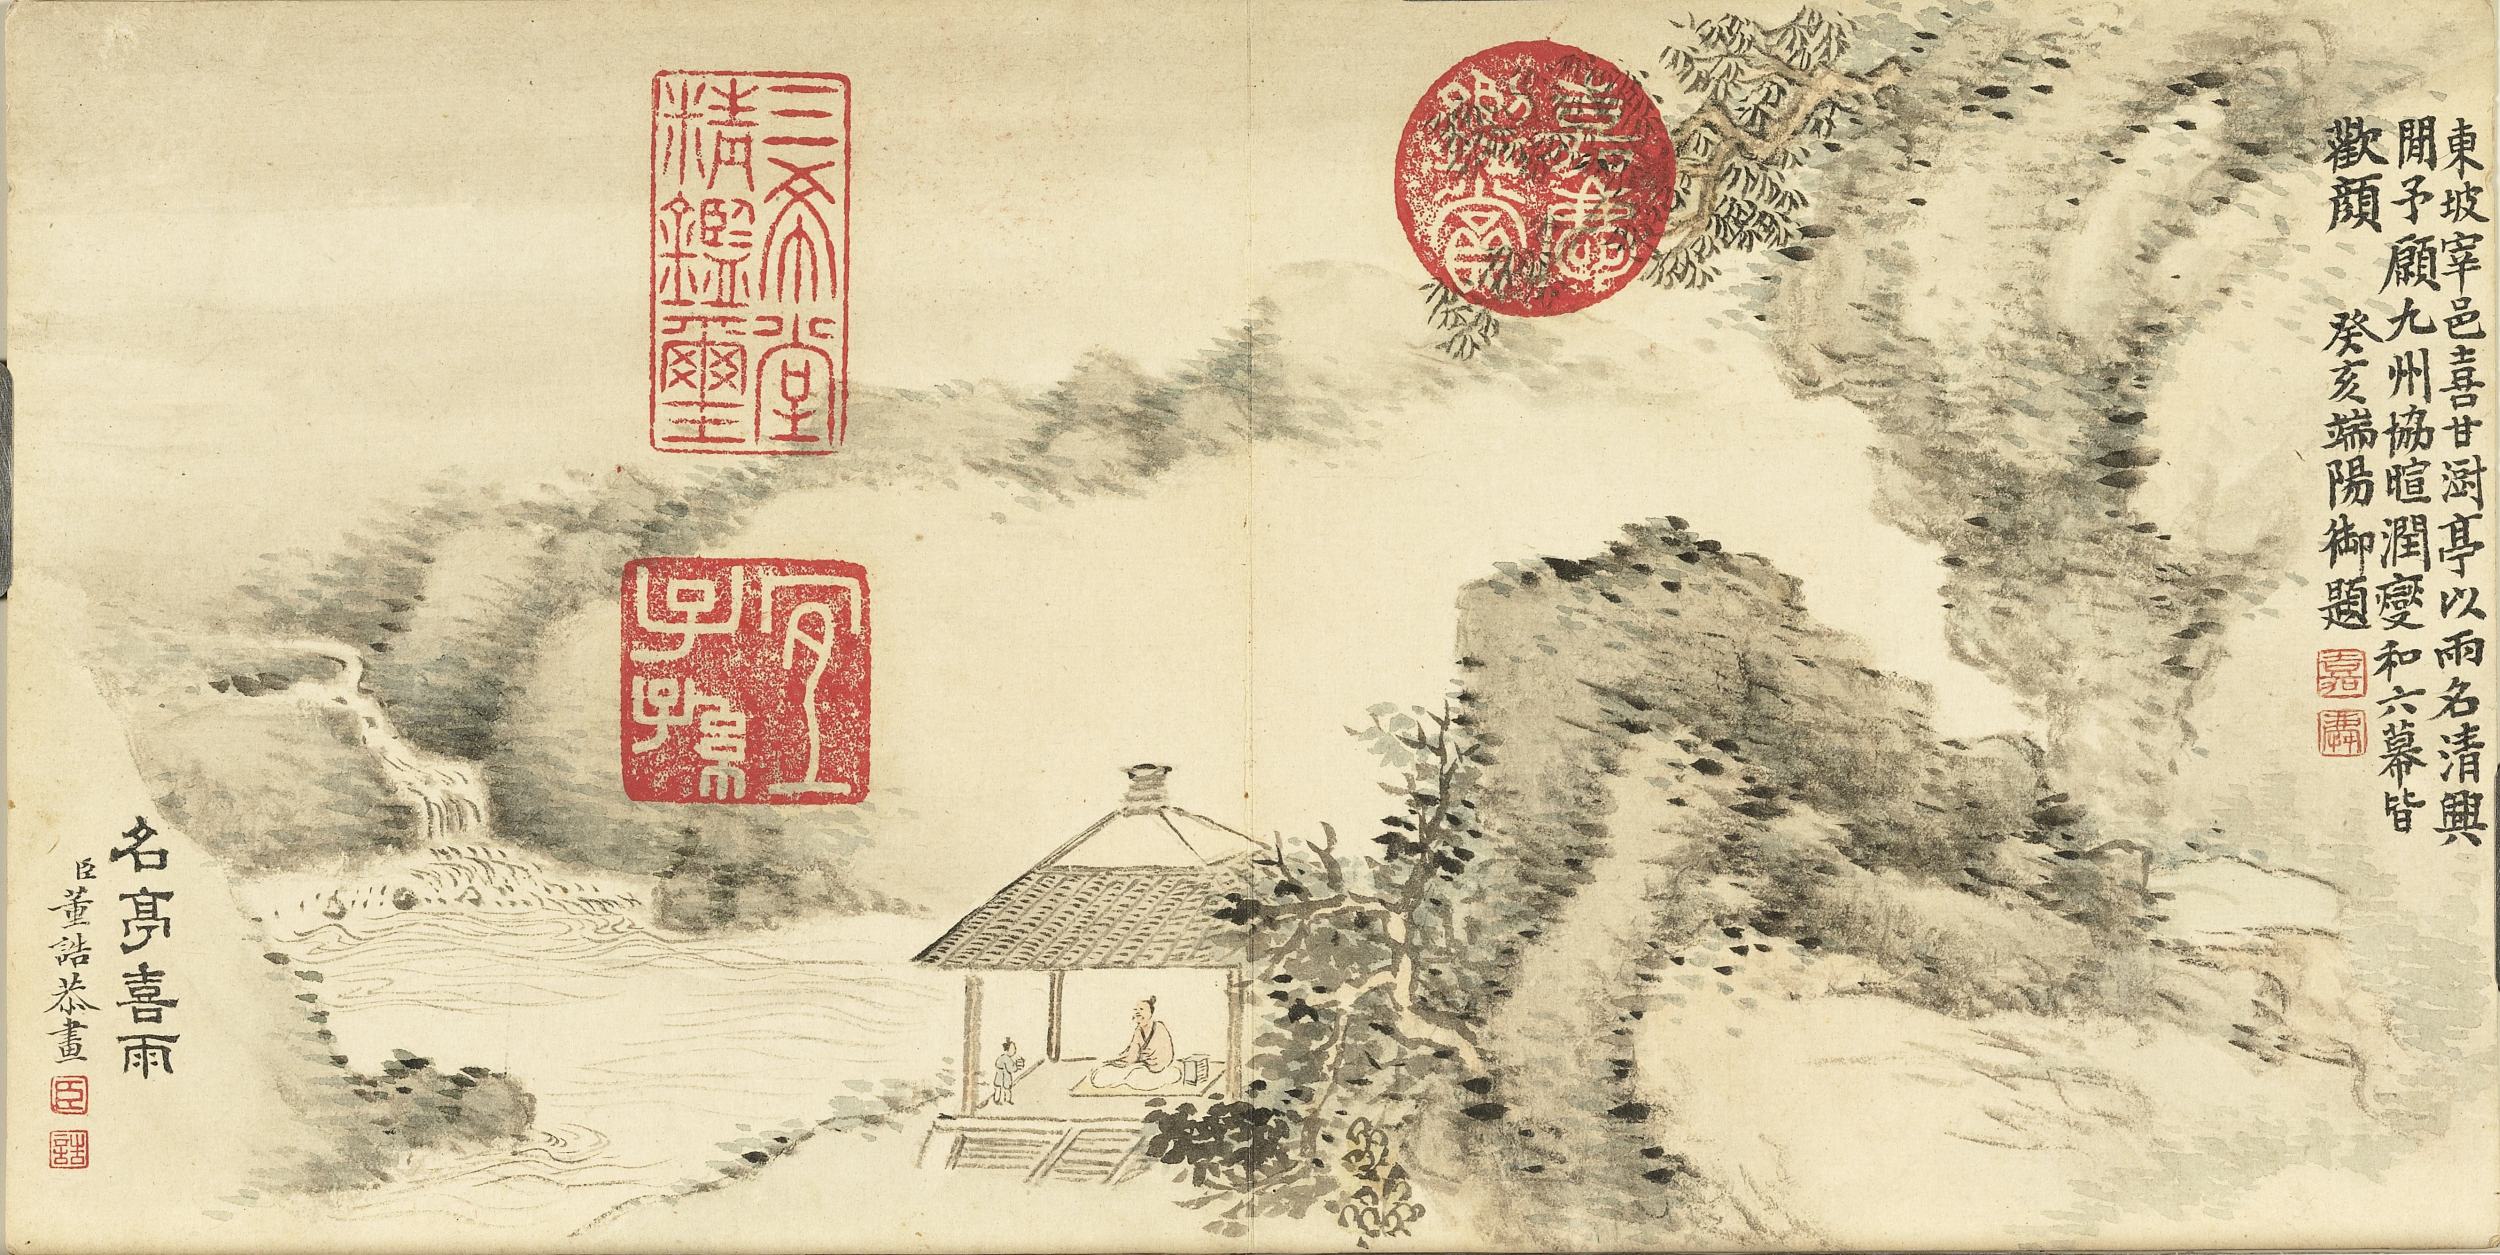 東坡宰邑喜甘澍亭以雨名清興
閒予願九州協暄潤燮和六幕皆
歡顏
癸亥端陽御題
嘉
慶
三希堂
精鑑璽
宜
子孫
名亭喜雨
臣董誥恭畫
臣
誥